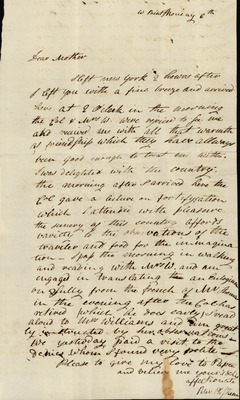 Dear Mother
I left new York 2 hours after
I left you with a fine breeze and arrived
here at 2 O'clock in the morning
the Col & Mrs W. were rejoiced to see me
and received me with all that warmth
of friendship which they have allways
been good enough to treat me with.
I was delighted with the country.
the morning after I arrived here the
Col gave a lecture on fortification
which I attended with pleasure
the scenery of this country affords
variety to the observations of the
traveler and food for the imagina
tion – I pass the morning in walking
and reading with Mrs W. and am
engaged in translating then an Eulogium
on Sully from the french of Mr
in the evening after the Col has
retired which he does early I read
aloud to Mrs Williams and am great
ly by her observations
We yesterday paid a visit to the
whom I found very polite –
Please to give my love to Papa
and believe me yours
affectionate